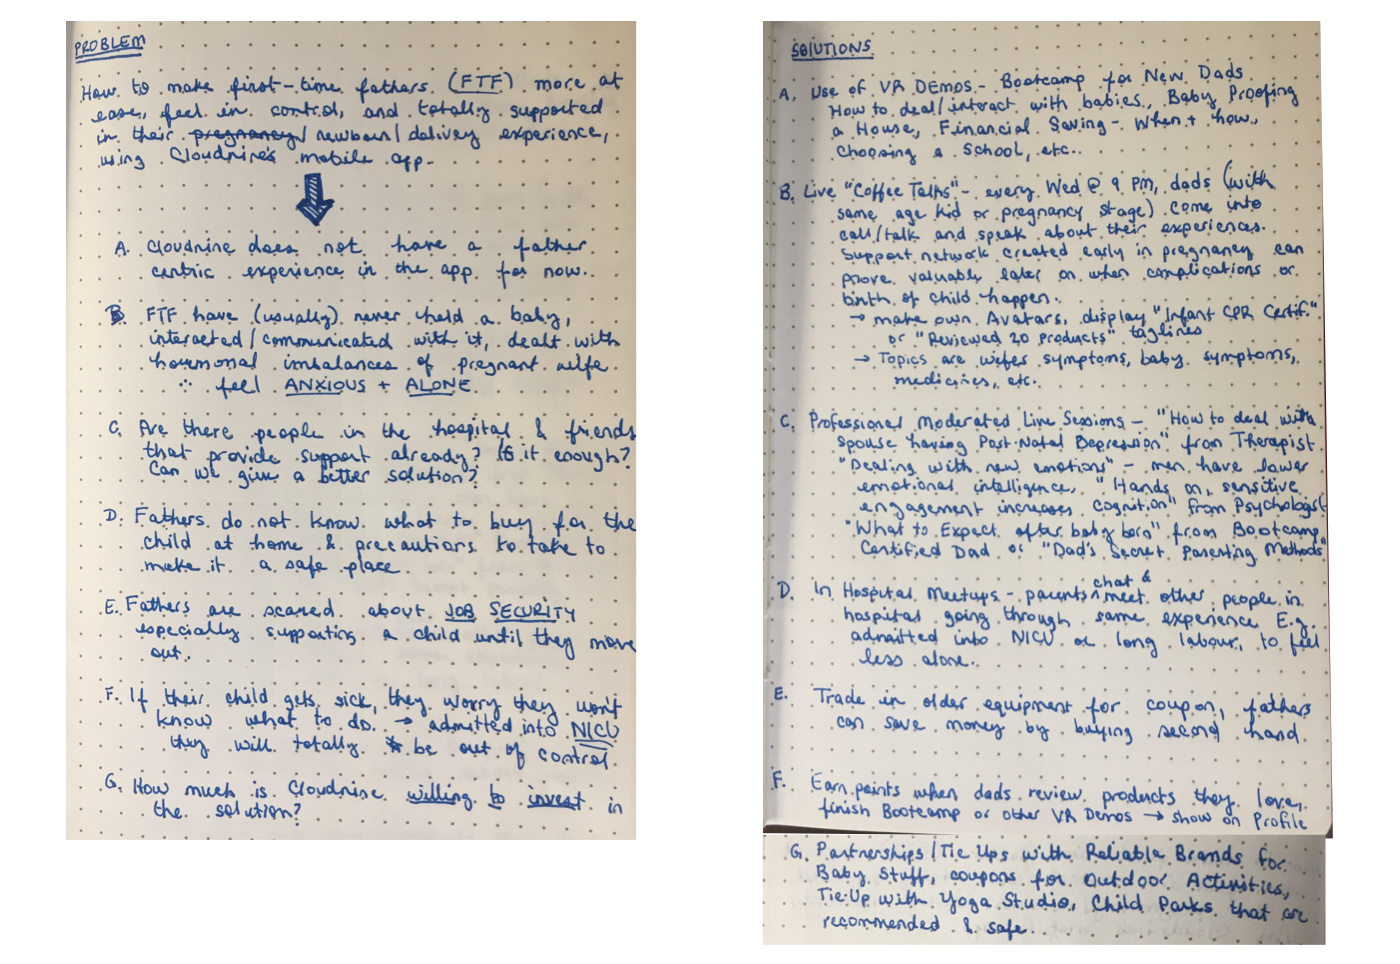 PROBLEM
How to make first-time fathers (FTF) more at
ease, feel in control, and totally supported
in their pregnancy/newborn/delivery experience,
using Cloudnine's mobile app.
A. Cloudnine does not have a father
centric experience in the app for now.
B. FTF have (usually) never held a baby,
interacted/communicated with it, dealt with
hormonal imbalances of pregnant wife
∴ feel ANXIOUS + ALONE.
C. Are there people in the hospital & friends
that provide support already? Is it enough?
Can we give a better solution?
D. Fathers do not know what to buy for the
child at home & precautions to take to
make it a safe place.
E. Fathers are scared about JOB SECURITY
especially supporting a child until they move
out.
F. If their child gets sick, they worry they won't
know what to do. → admitted into NICU
they will totally be out of control.
G. How much is Cloudnine willing to invest in
the solution?
SOLUTIONS
A. Use of VR DEMOS - Bootcamp for New Dads
How to deal/interact with babies, Baby Proofing
a House, Financial Saving - When + how,
Choosing a School, etc.
B. Live "Coffee Talks" - every Wed @ 9 PM, dads (with
same age kid or pregnancy stage) come into
call/talk and speak about their experiences.
Support network created early in pregnancy can
prove valuable later on when complications or
birth of child happen.
→ make own Avatars, display "Infant CPR Certif."
or "Reviewed 20 products" taglines
→ Topics are wifes symptoms, baby symptoms,
medicines, etc.
C. Professional Moderated Live Sessions - "How to deal with
spouse having Post-Natal Depression" from Therapist
"Dealing with new emotions" - men have lower
emotional intelligence, "Hands on, sensitive
engagement increases cognition" from Psychologist
"What to Expect after baby born" from Bootcamp
Certified Dad or "Dad's Secret Parenting Methods"
D. In Hospital Meetups - parents chat & meet other people in
hospital going through same experience E.g.
admitted into NICU or long labour, to feel
less alone.
E. Trade in older equipment for coupon, fathers
can save money by buying second hand.
F. Earn points when dads review products they love,
finish Bootcamp or other VR Demos → show on Profile
G. Partnerships/Tie Ups with Reliable Brands for
Baby Stuff, coupons for Outdoor Activities,
Tie-Up with Yoga Studio, Child Parks that are
recommended & safe.